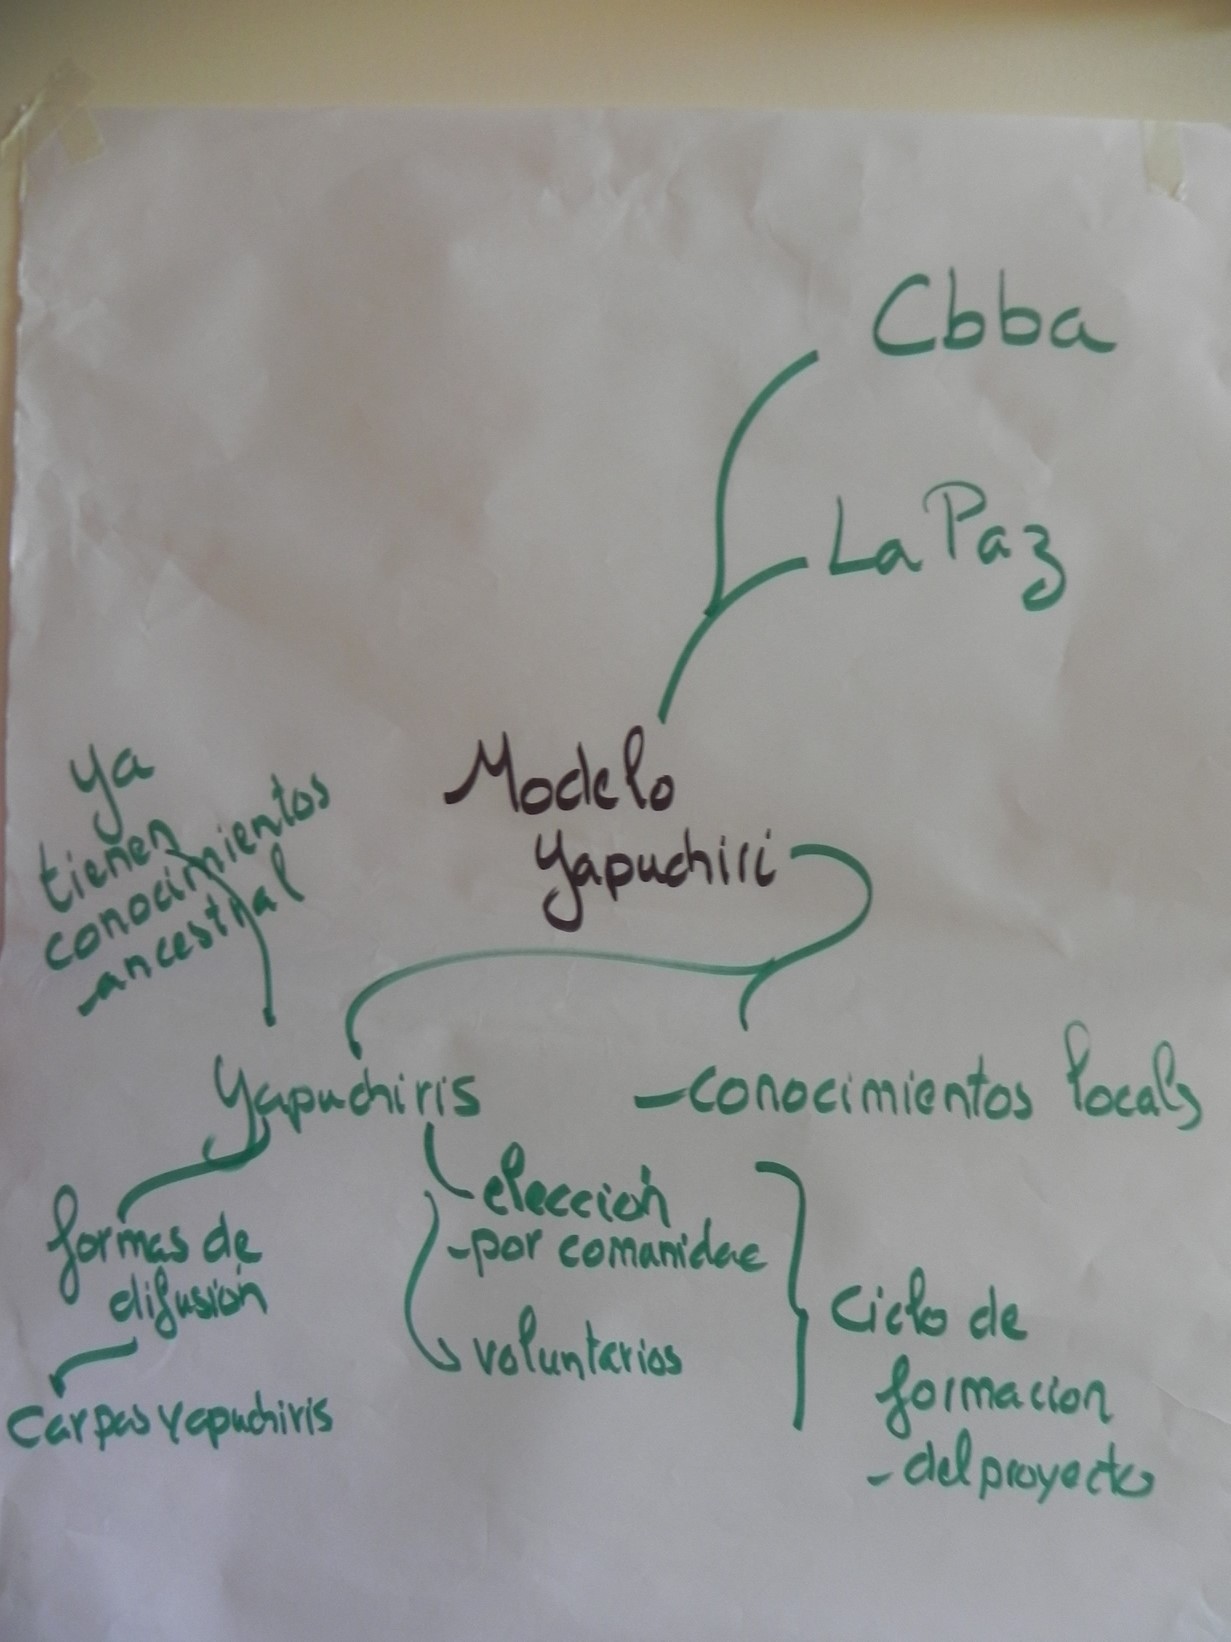 Cbba
La Paz
Modelo
Yapuchiri
ya
tienen
conocimientos
ancestral
Yapuchiris
-conocimientos locals
elección
-por comunidae
voluntarios
formas de
difusión
Carpas Yapuchiris
Ciclo de
formacion
-del proyecto